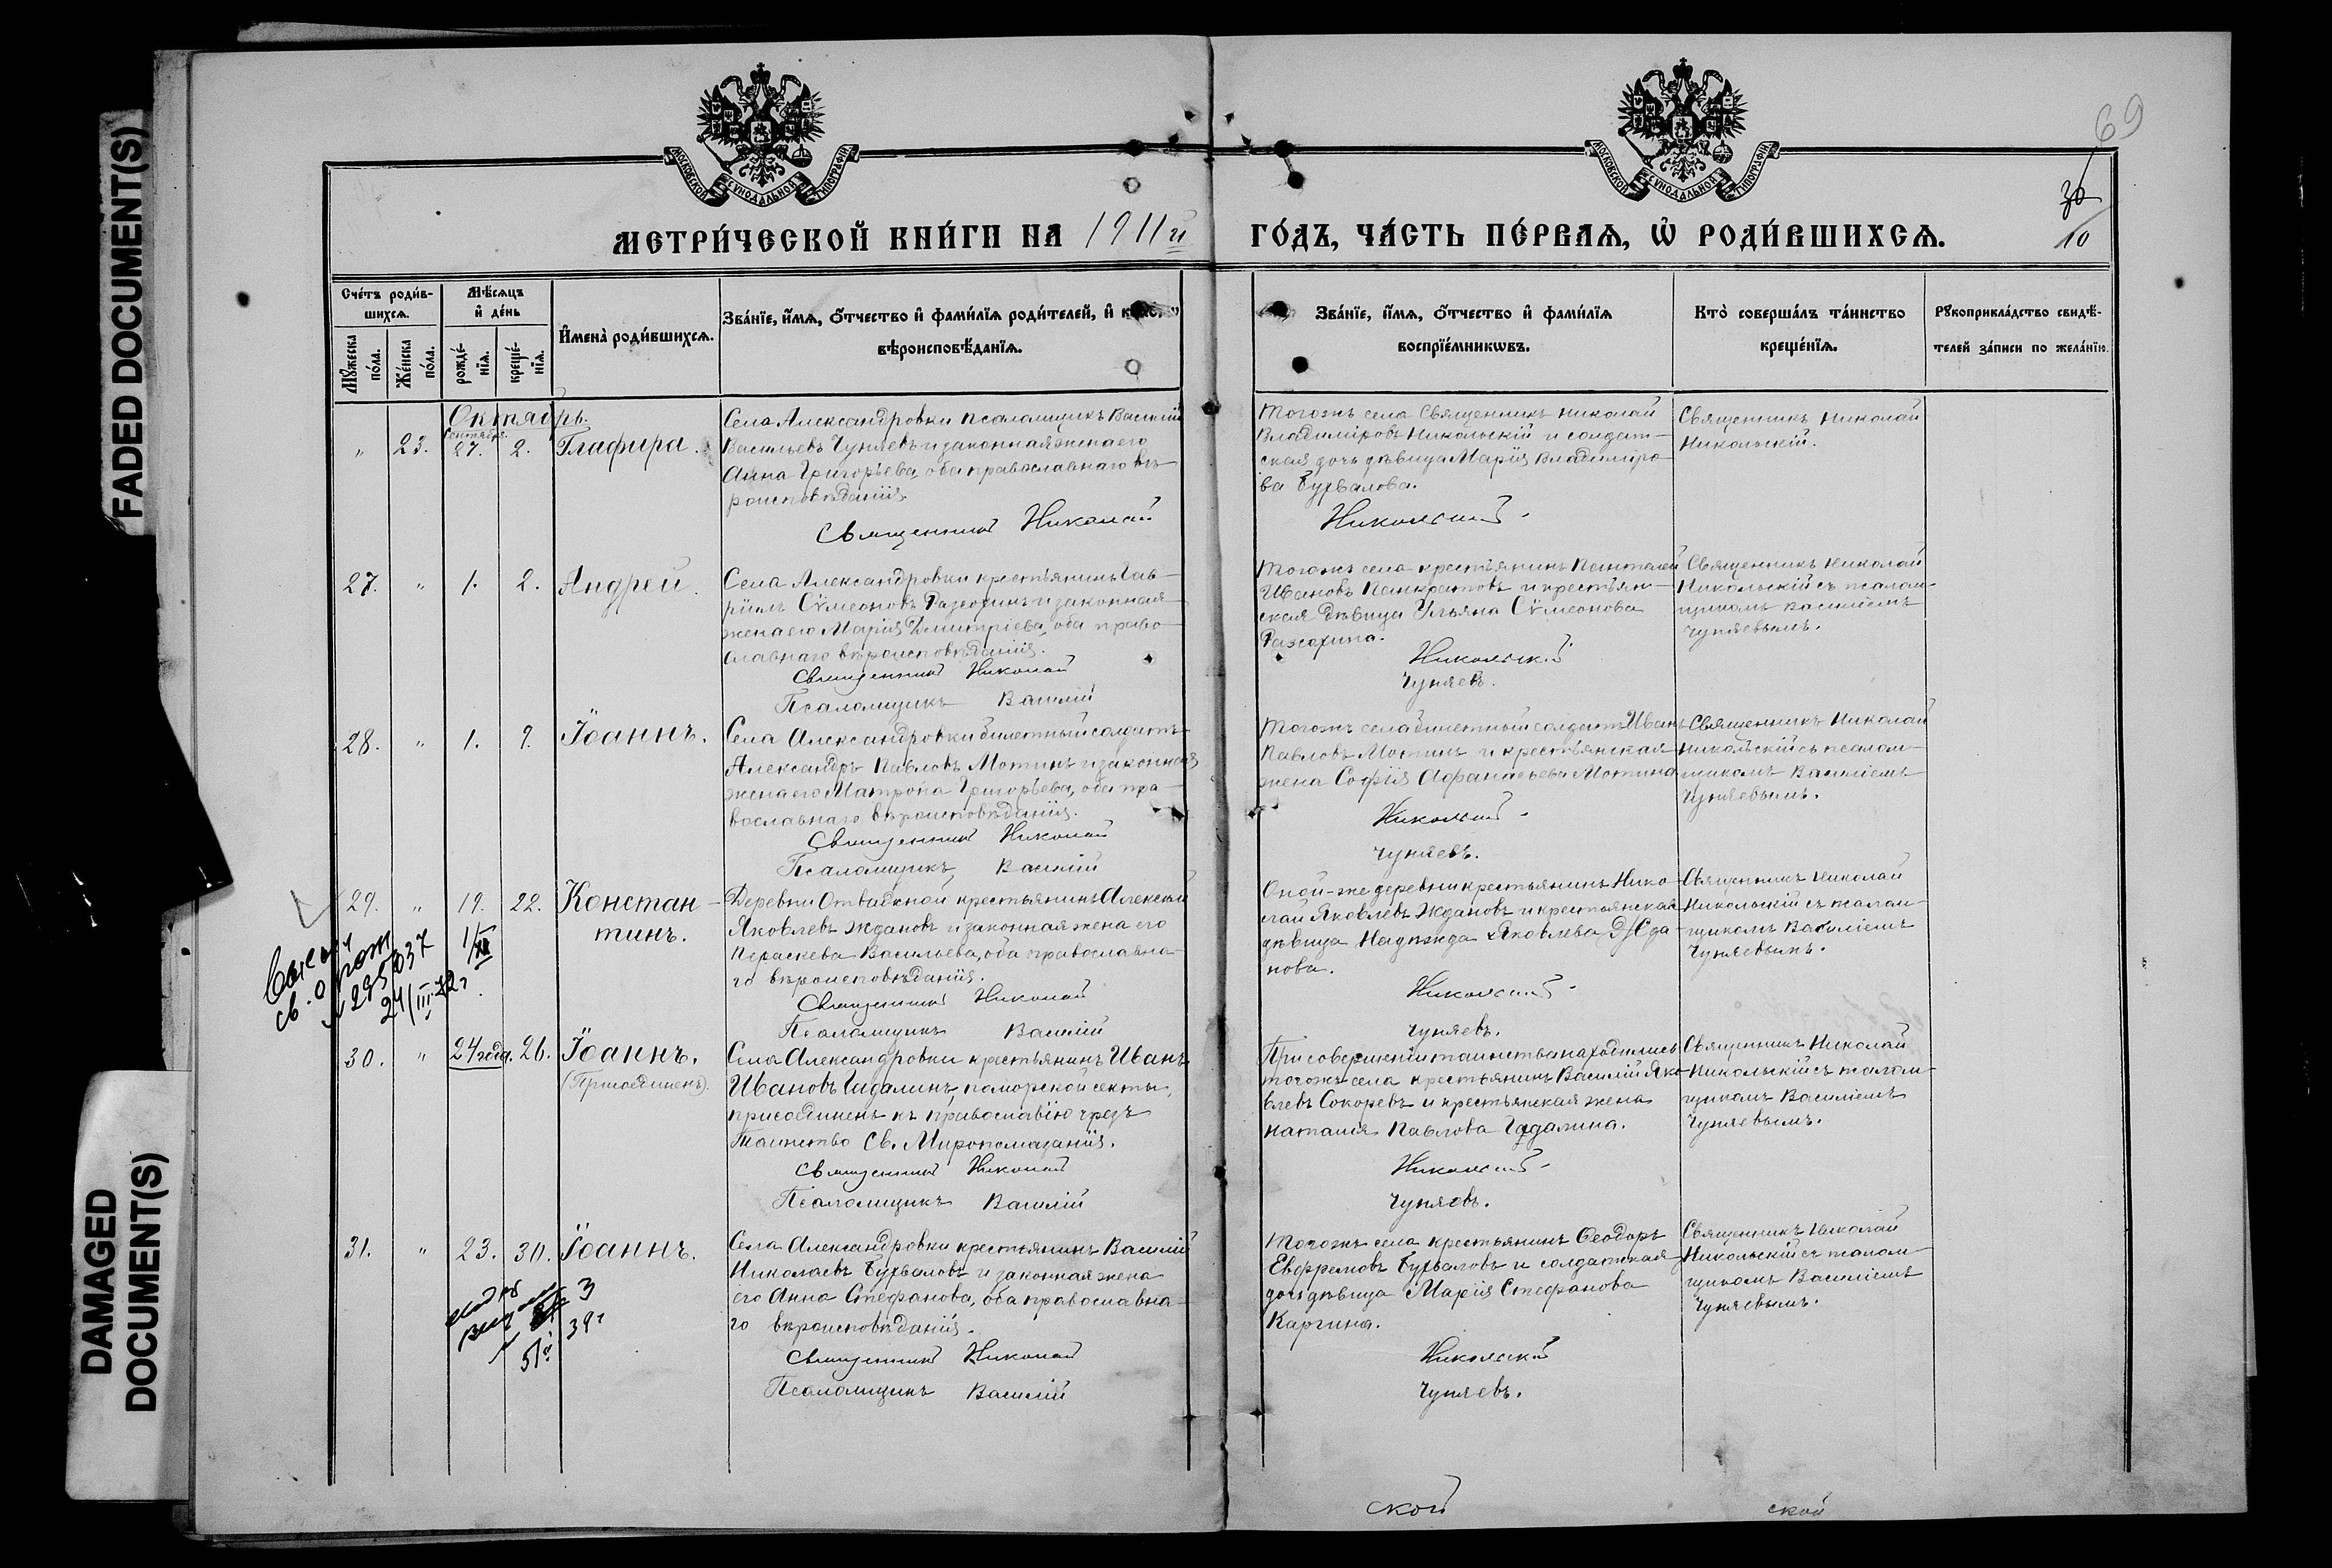 FADED DOCUMENT(S)
DAMAGED
DOCUMENT(S)
МОСКОВСКОЙ СѴНОДАЛЬНОЙ ТИПОГРАФІИ
МОСКОВСКОЙ СѴНОДАЛЬНОЙ ТИПОГРАФІИ
69
30
10
МЕТРИ́ЧЕСКОЙ КНИ́ГИ НА 1911й
ГО́ДЪ, ЧА́СТЬ ПЕ́РВАѦ, Ѡ҆ РОДИ́ВШИХСѦ.
Сче́тъ роди́в-
шихсѧ.
Мꙋ́жеска по́ла.
Же́нска по́ла.
Мѣ́сѧцъ
и҆ де́нь
рожде́-
нїѧ.
креще́-
нїѧ.
И҆мена̀ роди́вшихсѧ.
Зва́нїе, и҆́мѧ, ѻ҆́тчество и҆ фами́лїѧ роди́телей, и҆
вѣроисповѣ́данїѧ.
Зва́нїе, и҆́мѧ, ѻ҆́тчество и҆ фами́лїѧ
воспрїе́мникѡвъ.
Кто̀ соверша́лъ та́инство
креще́нїѧ.
Рꙋкоприкла́дство свидѣ́-
телей за́писи по жела́нїю.
Октябрь.
Сентября.
" 23. 27. 2. Глафира.
Села Александровки псаломщикъ Василій
Васильевъ Чуняевъ и законная жена его
Анна Григорьева, оба православнаго вѣ-
роисповѣданія.
Священникъ Николай
Тогожъ села Священникъ Николай
Владиміровъ Никольскій и солдат-
ская дочь дѣвица Марія Владиміро-
ва Бухвалова.
Никольскій.
Священникъ Николай
Никольскій.
27. " 1. 2. Андрей.
Села Александровки крестьянинъ Гав-
ріилъ Сѵмеоновъ Разсохинъ и законная
жена его Марія Димитріева, оба право-
славнаго вѣроисповѣданія.
Священникъ Николай
Псаломщикъ Василій
Тогожъ села крестьянинъ Пантелей
Ивановъ Панкратовъ и крестьян-
ская дѣвица Ульяна Сѵмеонова
Разсохина.
Никольскій
Чуняевъ.
Священникъ Николай
Никольскій съ псалом-
щикомъ Василіемъ
Чуняевымъ.
28. " 1. 9. Іоаннъ.
Села Александровки билетный солдатъ
Александръ Павловъ Мотинъ и законная
жена его Матрона Григорьева, оба пра-
вославнаго вѣроисповѣданія.
Священникъ Николай
Псаломщикъ Василій
Тогожъ села билетный солдатъ Иванъ
Павловъ Мотинъ и крестьянская
жена Софія Афанасьева Мотина
Никольскій.
Чуняевъ.
Священникъ Николай
Никольскій съ псалом-
щикомъ Василіемъ
Чуняевымъ.
29. " 19. 22. Констан-
тинъ.
1/XI
св. о рожд
№ 295037
24/III-72г.
Деревни Отвадной крестьянинъ Алексѣй
Яковлевъ Ждановъ и законная жена его
Параскева Васильева, оба православна-
го вѣроисповѣданія.
Священникъ Николай
Псаломщикъ Василій
Оной-же деревни крестьянинъ Нико-
лай Яковлевъ Ждановъ и крестьянская
дѣвица Надежда Яковлева Жда-
нова.
Никольскій.
Чуняевъ.
Священникъ Николай
Никольскій съ псалом-
щикомъ Василіемъ
Чуняевымъ.
30. " 24 года. 26. Іоаннъ.
(Присоединенъ)
Села Александровки крестьянинъ Иванъ
Ивановъ Гадалинъ, поморской секты,
присоединенъ къ православію чрезъ
Таинство Св. Миропомазанія.
Священникъ Николай
Псаломщикъ Василій
При совершеніи таинства находились
тогожъ села крестьянинъ Василій Яко-
влевъ Сокоревъ и крестьянская жена
Наталія Павлова Гадалина.
Никольскій.
Чуняевъ.
Священникъ Николай
Никольскій съ псалом-
щикомъ Василіемъ
Чуняевымъ.
31. " 23. 30. Іоаннъ.
3
51 39г
Села Александровки крестьянинъ Василій
Николаевъ Бухваловъ и законная жена
его Анна Стефанова, оба православна-
го вѣроисповѣданія.
Священникъ Николай
Псаломщикъ Василій
Тогожъ села крестьянинъ Ѳеодоръ
Евфремовъ Бухваловъ и солдатская
дочь дѣвица Марія Стефанова
Каргина.
Никольскій
Чуняевъ.
Священникъ Николай
Никольскій съ псалом-
щикомъ Василіемъ
Чуняевымъ.
ской
ской